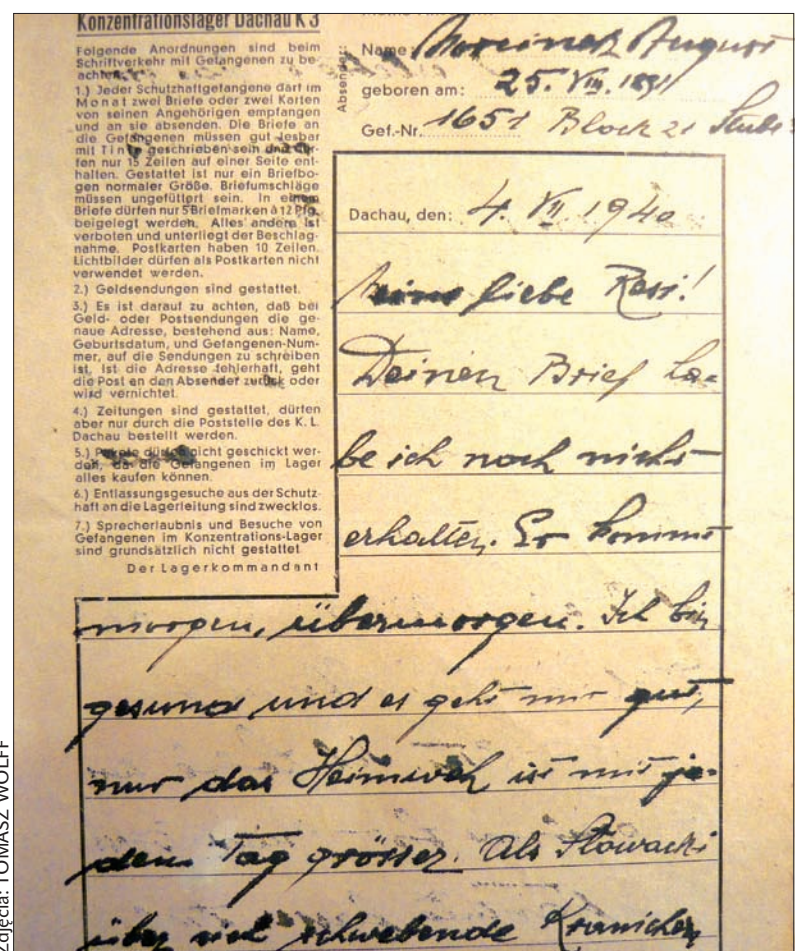 Konzentrationslager Dachau K 3
Folgende Anordnungen sind beim
Schriftverkehr mit Gefangenen zu be-
achten:
1.) Jeder Schutzhaftgefangene darf im
Monat zwei Briefe oder zwei Karten
von seinen Angehörigen empfangen
und an sie absenden. Die Briefe an
die Gefangenen müssen gut lesbar
mit Tinte geschrieben sein und dür-
fen nur 15 Zeilen auf einer Seite ent-
halten. Gestattet ist nur ein Briefbo-
gen normaler Größe. Briefumschläge
müssen ungefüttert sein. In einem
Briefe dürfen nur 5 Briefmarken à 12 Pfg.
beigelegt werden. Alles andere ist
verboten und unterliegt der Beschlag-
nahme. Postkarten haben 10 Zeilen.
Lichtbilder dürfen als Postkarten nicht
verwendet werden.
2.) Geldsendungen sind gestattet.
3.) Es ist darauf zu achten, daß bei
Geld- oder Postsendungen die ge-
naue Adresse, bestehend aus: Name,
Geburtsdatum, und Gefangenen-Num-
mer, auf die Sendungen zu schreiben
ist. Ist die Adresse fehlerhaft, geht
die Post an den Absender zurück oder
wird vernichtet.
4.) Zeitungen sind gestattet, dürfen
aber nur durch die Poststelle des K. L.
Dachau bestellt werden.
5.) Pakete dürfen nicht geschickt wer-
den, da die Gefangenen im Lager
alles kaufen können.
6.) Entlassungsgesuche aus der Schutz-
haft an die Lagerleitung sind zwecklos.
7.) Sprecherlaubnis und Besuche von
Gefangenen im Konzentrations-Lager
sind grundsätzlich nicht gestattet
Der Lagerkommandant
Absender:
Name: August
geboren am: 25. VIII. 1891
Gef.-Nr. 1651 Block 21 Stube
Dachau, den: 4. VII 1940
Meine liebe Resi!
Deinen Brief ha-
be ich noch nicht
erhalten. Er kommt
morgen, übermorgen. Ich bin
gesund und es geht mir gut,
nur das Heimweh ist mit je-
dem Tag grösser. Als Słowacki
über sich schwebende Kranichen
Zdjęcia: TOMASZ WOLFF